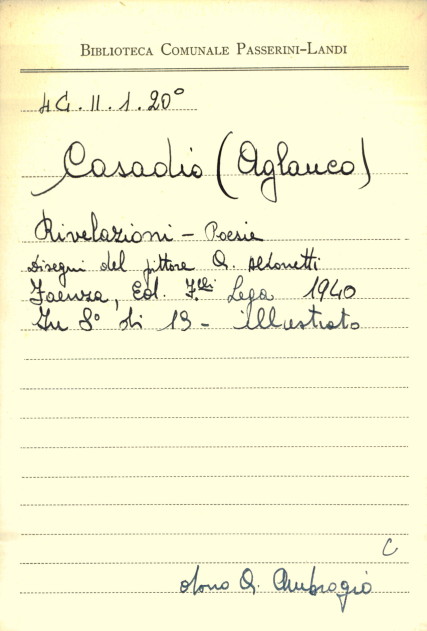 BIBLIOTECA COMUNALE PASSERINI-LANDI
4G.II.1.20°
Casadio (Aglauco)
Rivelazioni - Poesie
Disegni del pittore A. Aldonetti
Faenza, Ed. F.lli Lega 1940
In 8° di 13 - illustrato
C
dono A. Ambrogio